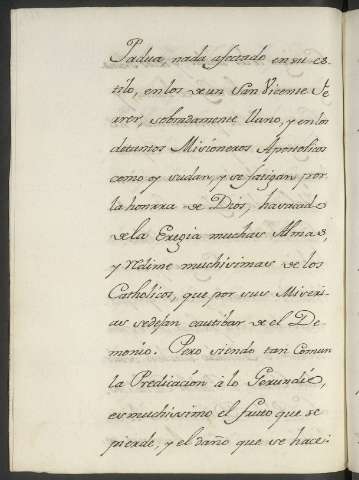 Padua, nada afectado en su es-
tilo, en los de un San Vicente Fe-
rrer, sobradamente llano, y en los
de tantos Misioneros Apostolicos
como oy sudan, y se fatigan por
la honrra de Dios, ha sacado
de la Eregia muchas Almas,
y redime muchisimas de los
Catholicos, que por sus Miseri-
as se dejan cautibar de el De-
monio. Pero siendo tan comun
la Predicacion à lo Gerundio,
es muchissimo el fruto que se
pierde, y el daño que se hace: